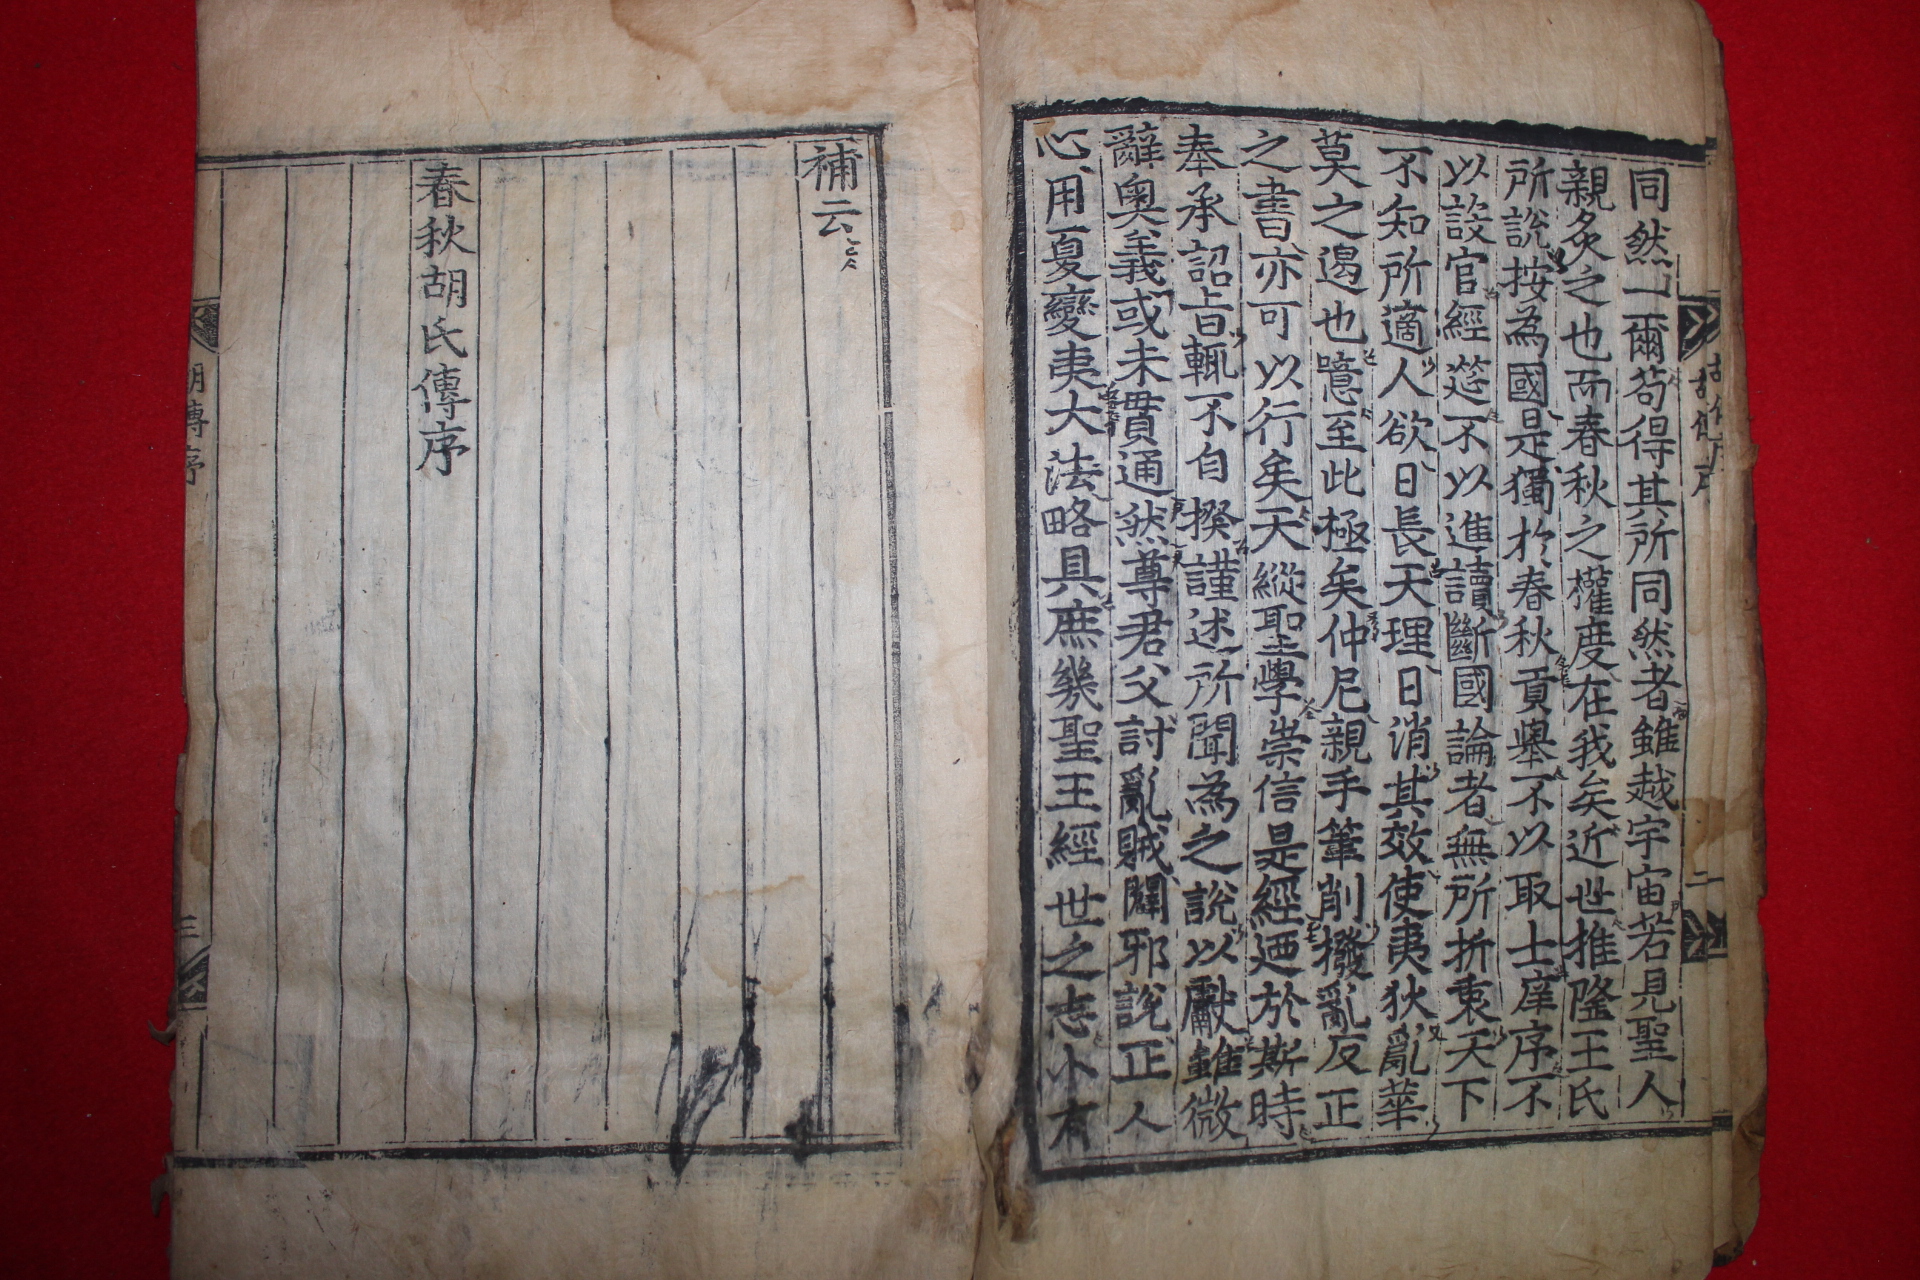 同然一爾苟得其所同然者雖越宇宙若見聖人
親炙之也而春秋之權度在我矣近世推隆王氏
所說按為國是獨於春秋貢舉不以取士庠序不
以設官經筵不以進讀斷國論者無所折衷天下
不知所適人欲日長天理日消其效使夷狄亂華
莫之遏也噫至此極矣仲尼親手筆削撥亂反正
之書亦可以行矣天縱聖學崇信是經廼於斯時
奉承詔旨輒不自揆謹述所聞為之說以獻雖微
辭奧義或未貫通然尊君父討亂賊闢邪說正人
心用夏變夷大法略具庶幾聖王經世之志小有
補云
春秋胡氏傳序
胡傳序
三
二